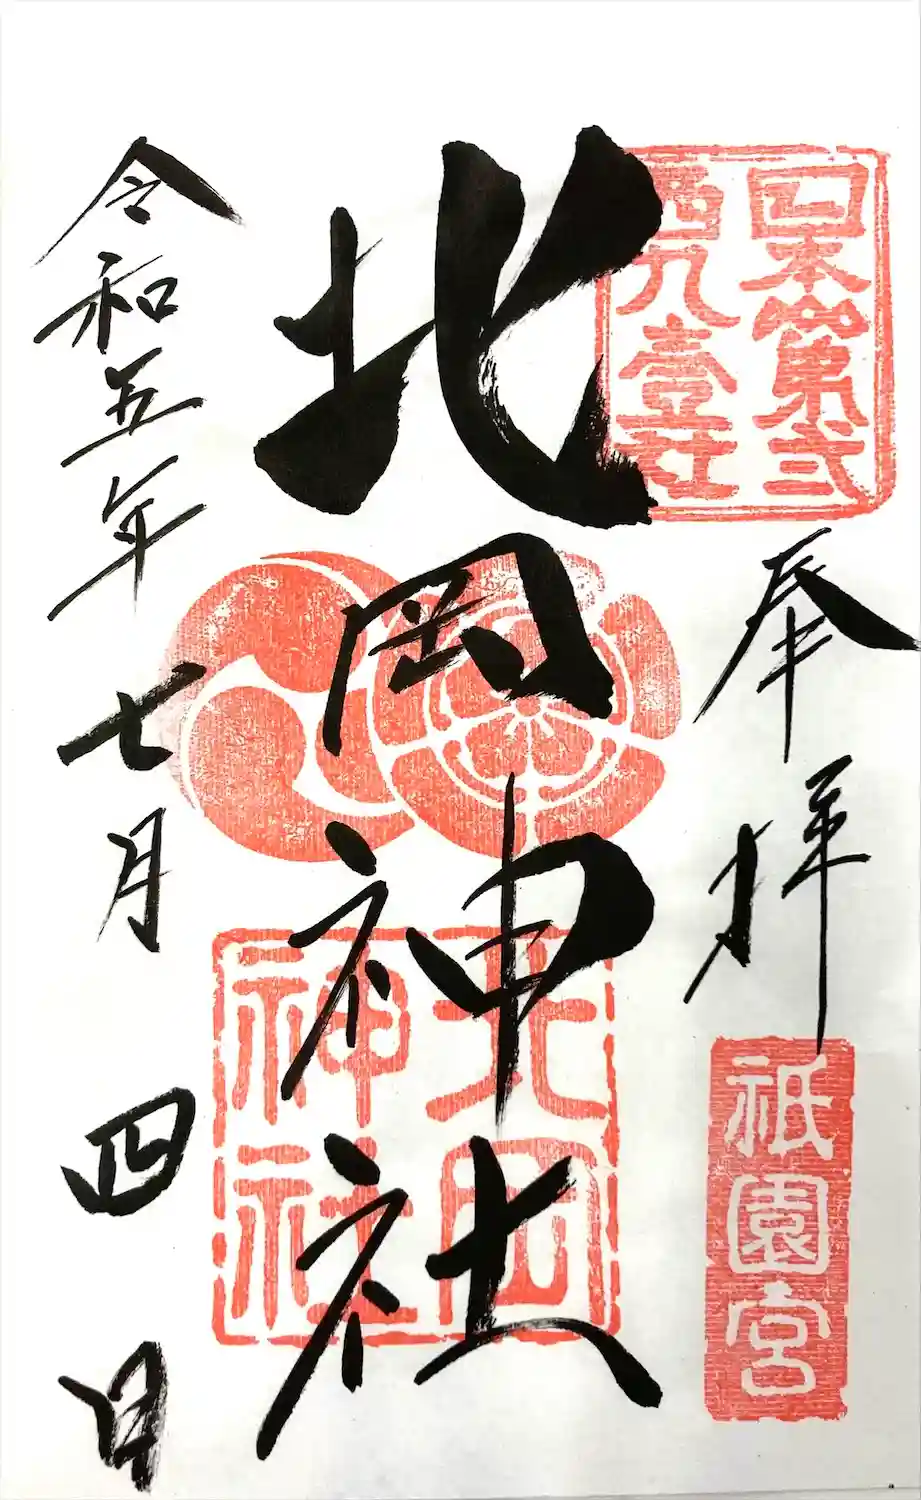 日本第弐
西九壹社
奉拝
祇園宮
北岡神社
北岡
神社
令和五年七月四日